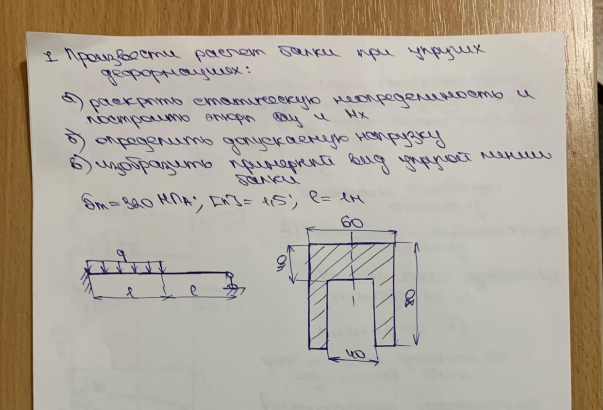 1. Произвести расчет балки при упругих
деформациях:
а) раскрыть статическую неопределимость и
построить эпюры Qy и Mx
б) определить допускаемую нагрузку
в) изобразить примерный вид упругой линии
балки
σт=320 МПа; [n]=1,5; l=1м
q
l
l
60
30
80
40